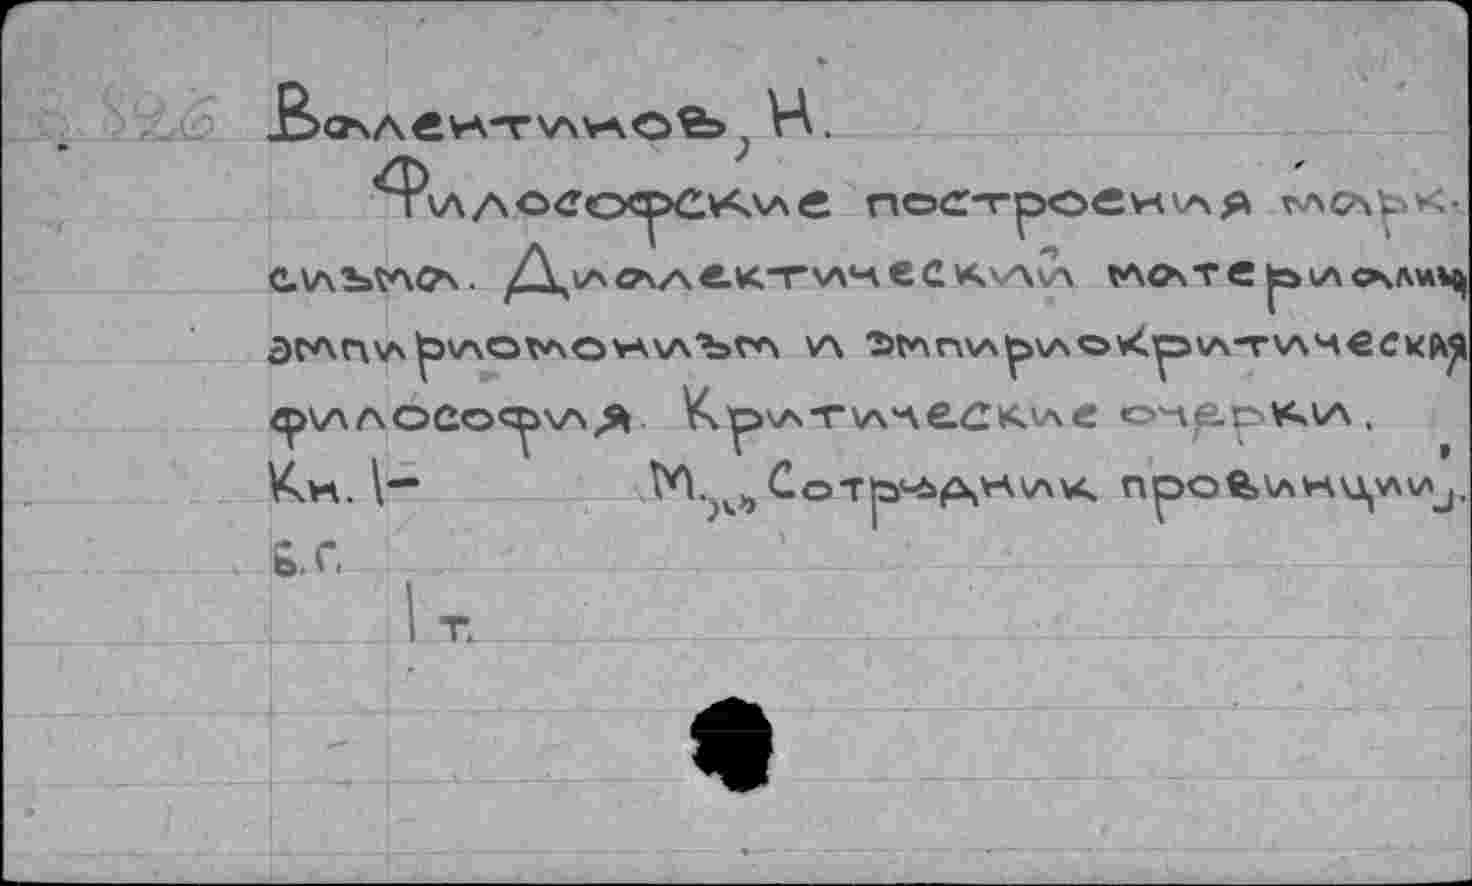 Валентинов, Н.
Философские построения марк-
сизма. Диалектический материализм,
эмпириомонизм и эмпириокритическая
философия. Критические очерки.
Кн. 1- М., „Сотрудник провинции",
б.г.
1 т.